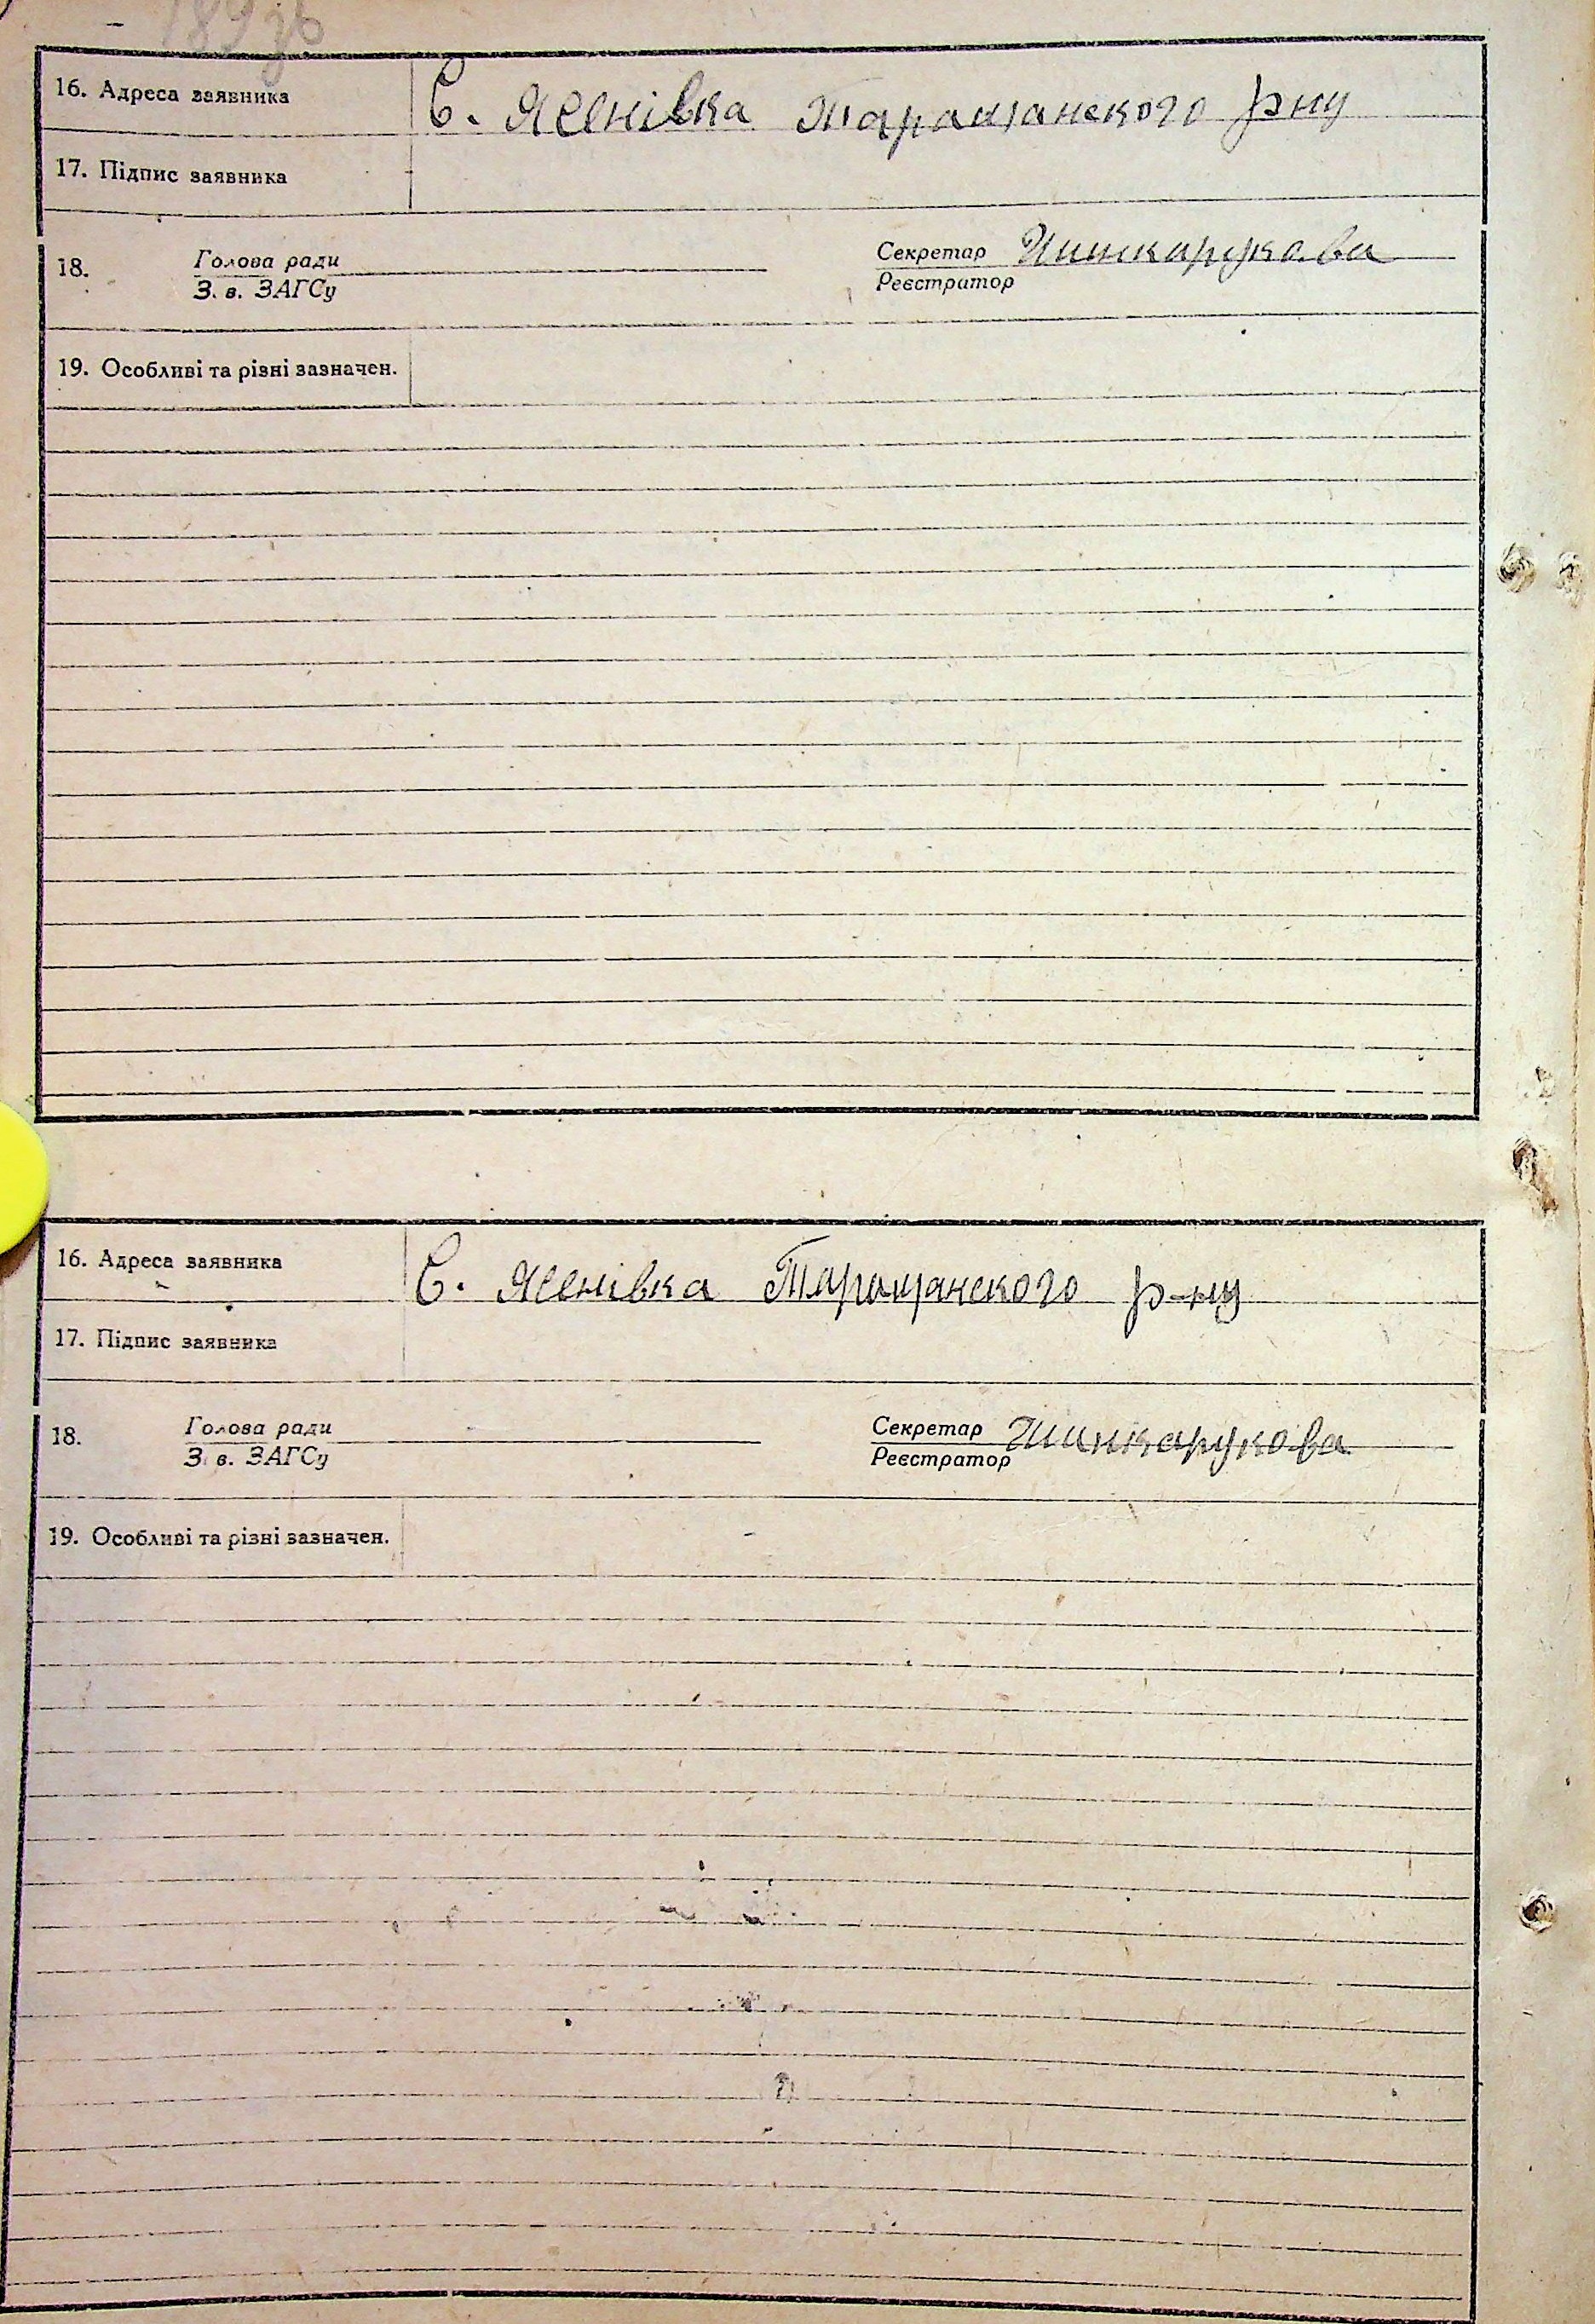 189 зв
16. Адреса заявника С. Ясенівка Таращанского рну
17. Підпис заявника
18. Голова ради Секретар Шинкарукова
З. в. ЗАГСу Реєстратор
19. Особливі та різні зазначен.
16. Адреса заявника С. Ясенівка Таращанского р-ну
17. Підпис заявника
18. Голова ради Секретар Шинкарукова
З. в. ЗАГСу Реєстратор
19. Особливі та різні зазначен.